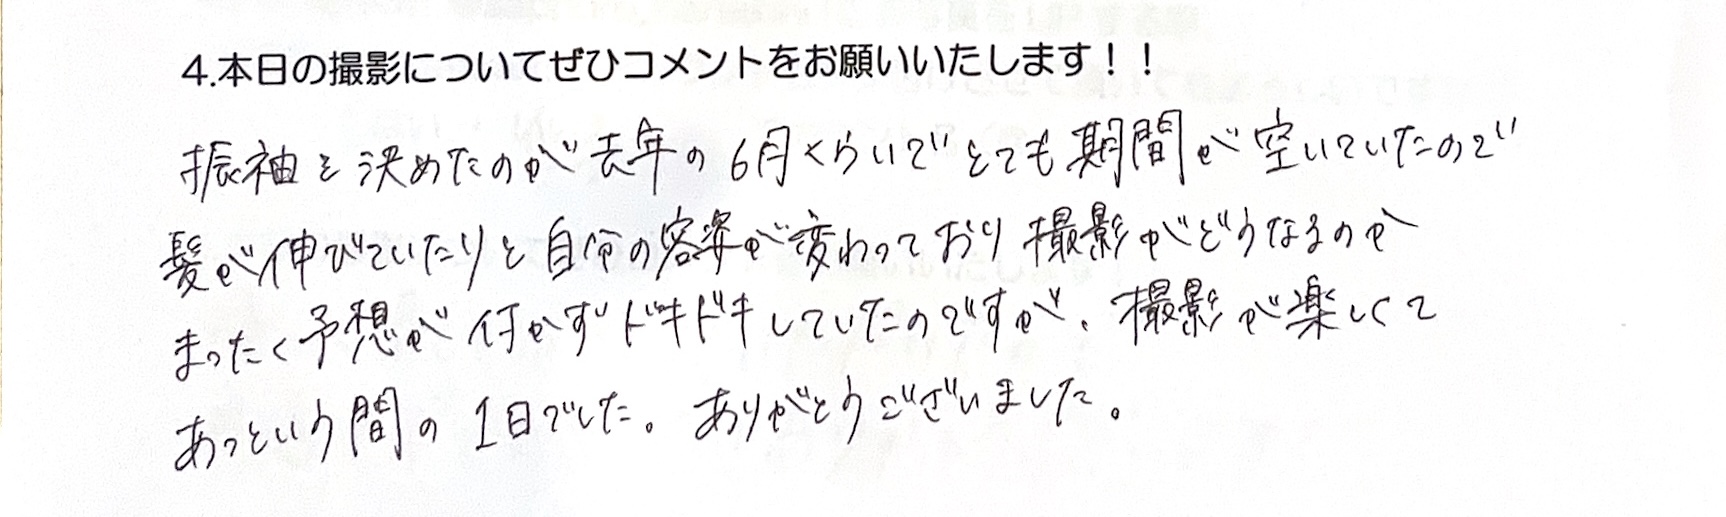 4.本日の撮影についてぜひコメントをお願いいたします！！
振袖を決めたのが去年の6月くらいでとても期間が空いていたので
髪が伸びていたりと自分の容姿が変わっており撮影がどうなるのか
まったく予想が付かずドキドキしていたのですが、撮影が楽しくて
あっという間の1日でした。ありがとうございました。